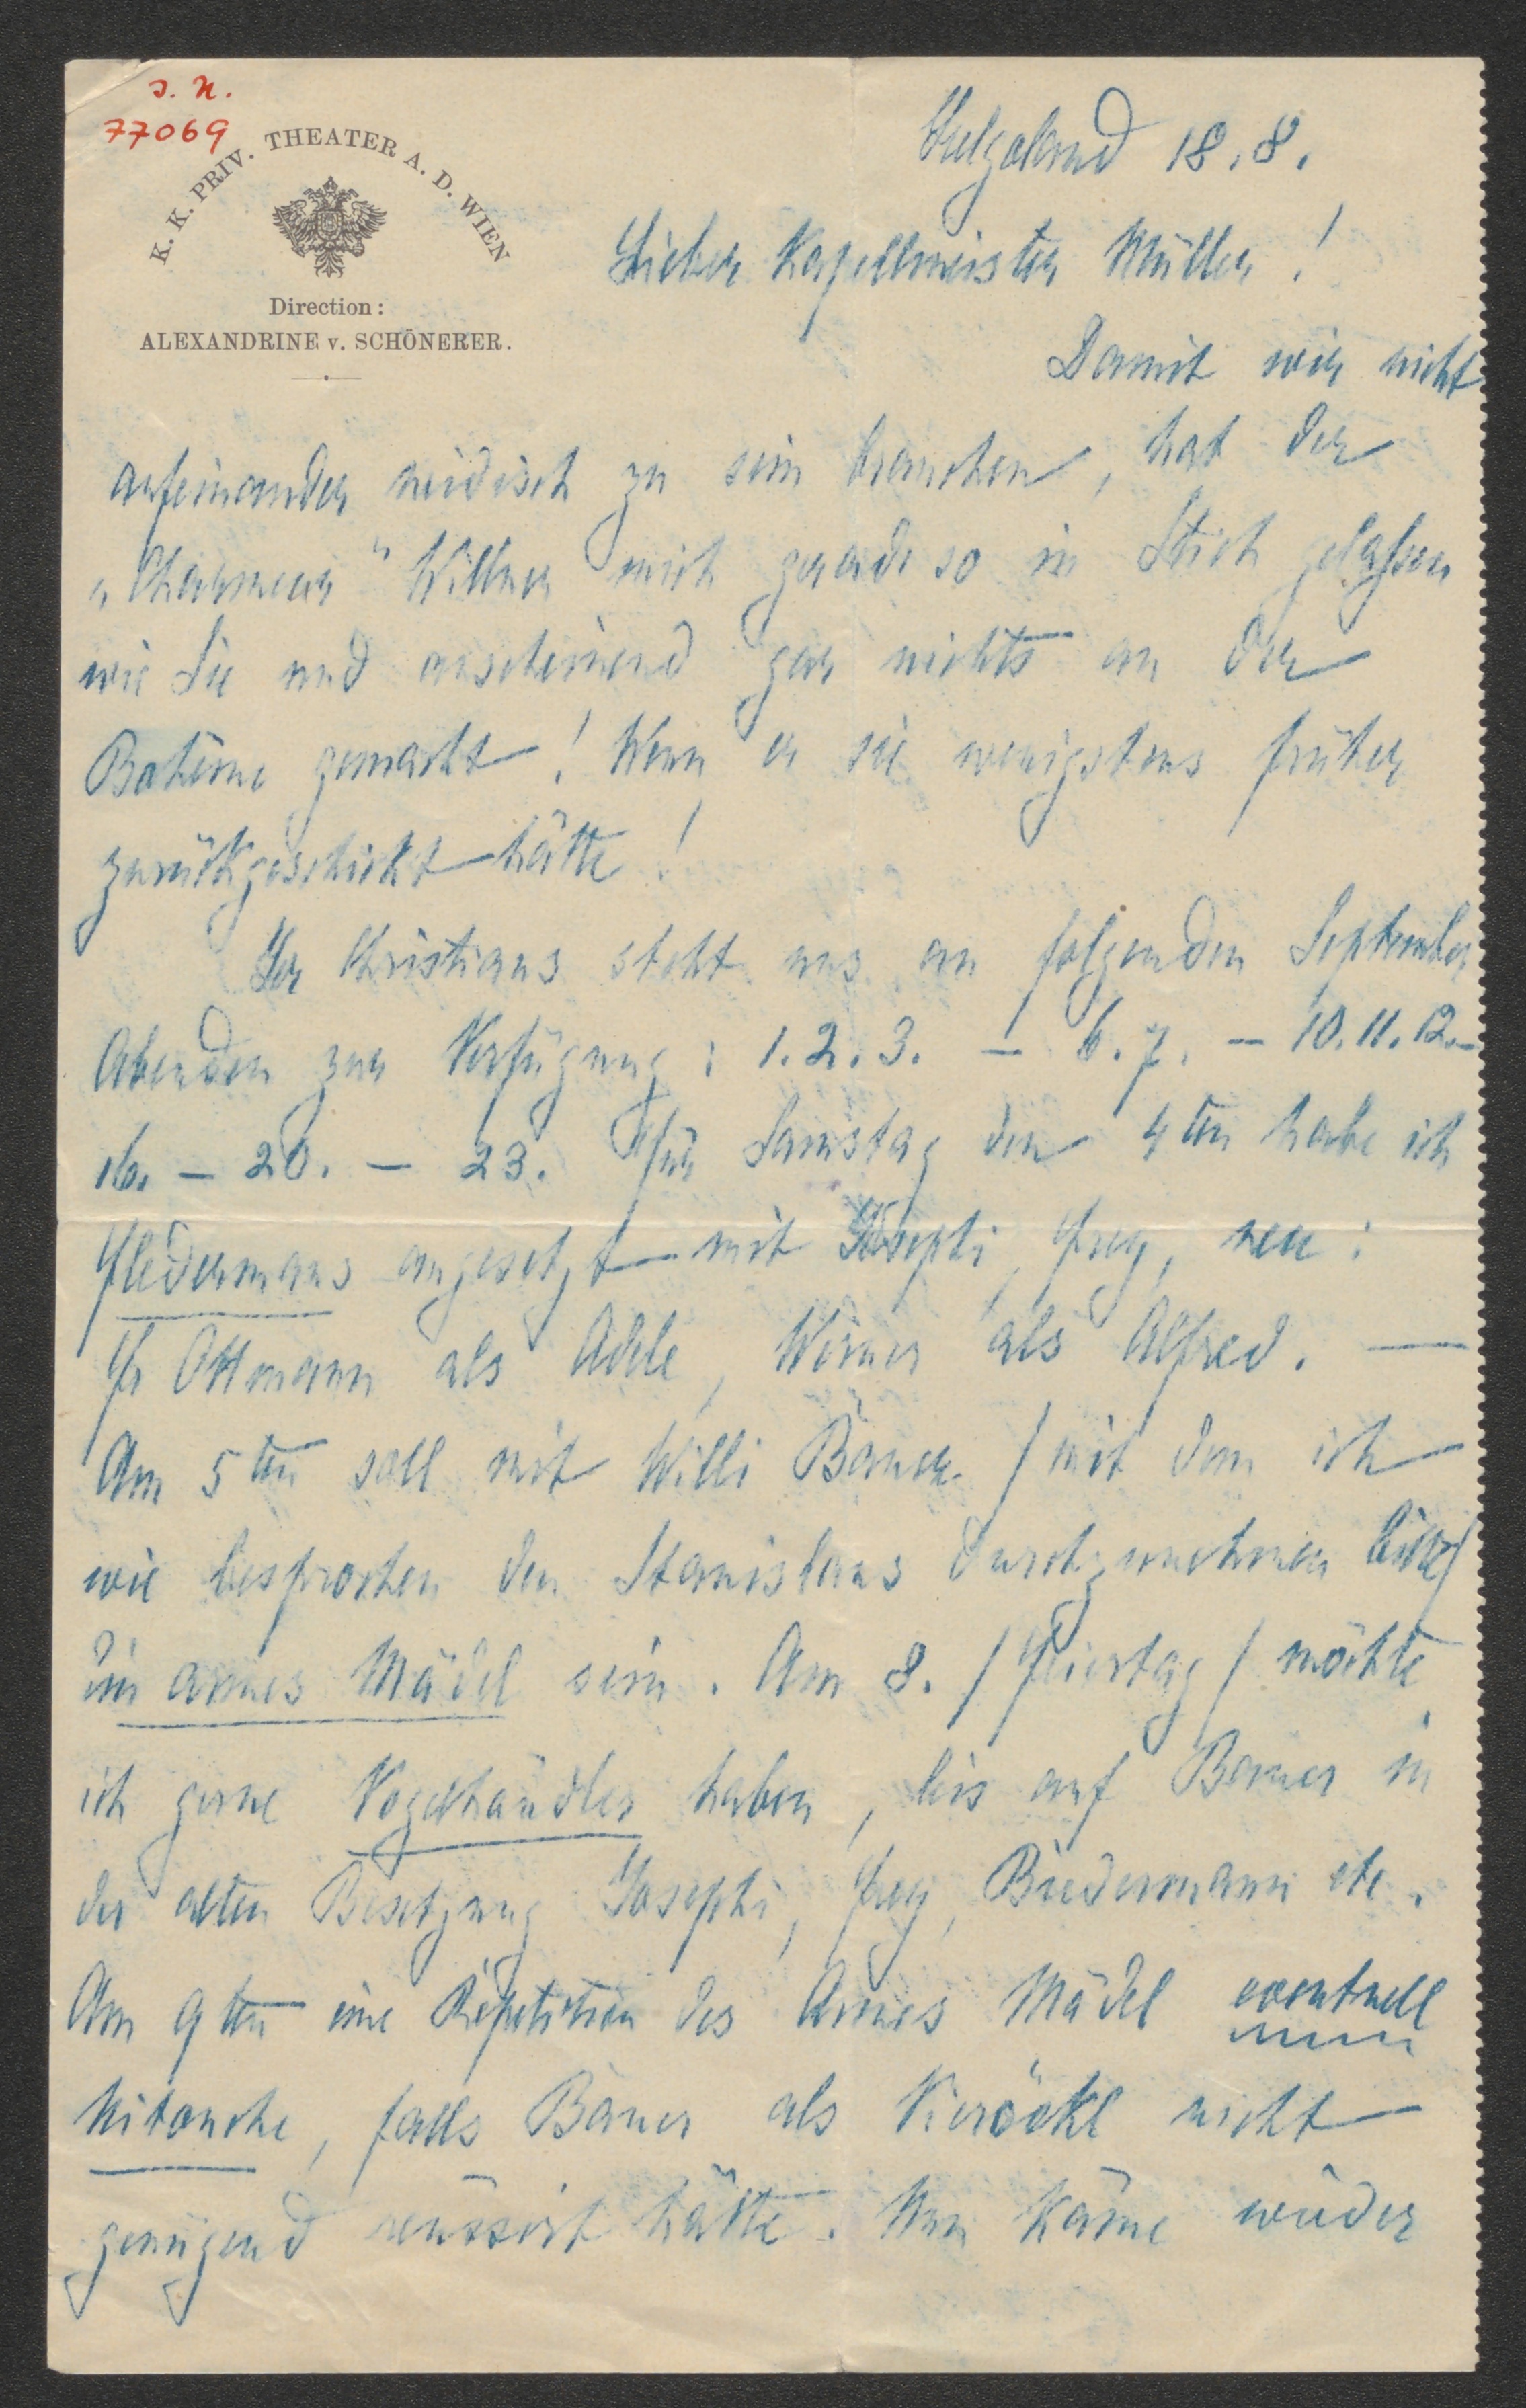 J. N.
77069
K. K. PRIV. THEATER A. D. WIEN
Direction:
ALEXANDRINE v. SCHÖNERER.
Helgoland 18.8.
Lieber Kapellmeister Müller!
Damit wir nicht
aufeinander neidisch zu sein brauchen, hat der
„Charmeur" Willner mich gerade so in Stich gelassen
wie Sie und anscheinend gar nichts an der
Bohème gemacht! Wenn er sie wenigstens früher
zurückgeschickt hätte!
Der Christians steht uns an folgenden September
Abenden zur Verfügung: 1. 2. 3. – 6. 7. – 10. 11. 12. –
16. – 20. – 23. Für Samstag den 4ten habe ich
Fledermaus angesetzt mit Josephi, Frey, neu:
Fr Ottmann als Adele, Werner als Alfred. —
Am 5ten soll mit Willi Bauer / mit dem ich
wie besprochen den Stanislaus durchzunehmen bitte /
ein armes Mädel sein. Am 8. / Feiertag / möchte
ich gerne Vogelhändler haben, bis auf Bauer in
der alten Besetzung Josephi, Frey, Biedermann etc.
Am 9ten eine Repetition des Armes Mädel eventuell
Nitouche, falls Bauer als Vieröckl nicht
genügend reüssirt hätte. Nun käme wieder